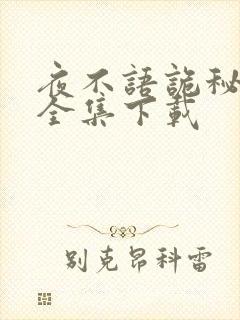 夜不語詭秘
全集下載
别克昂科雷